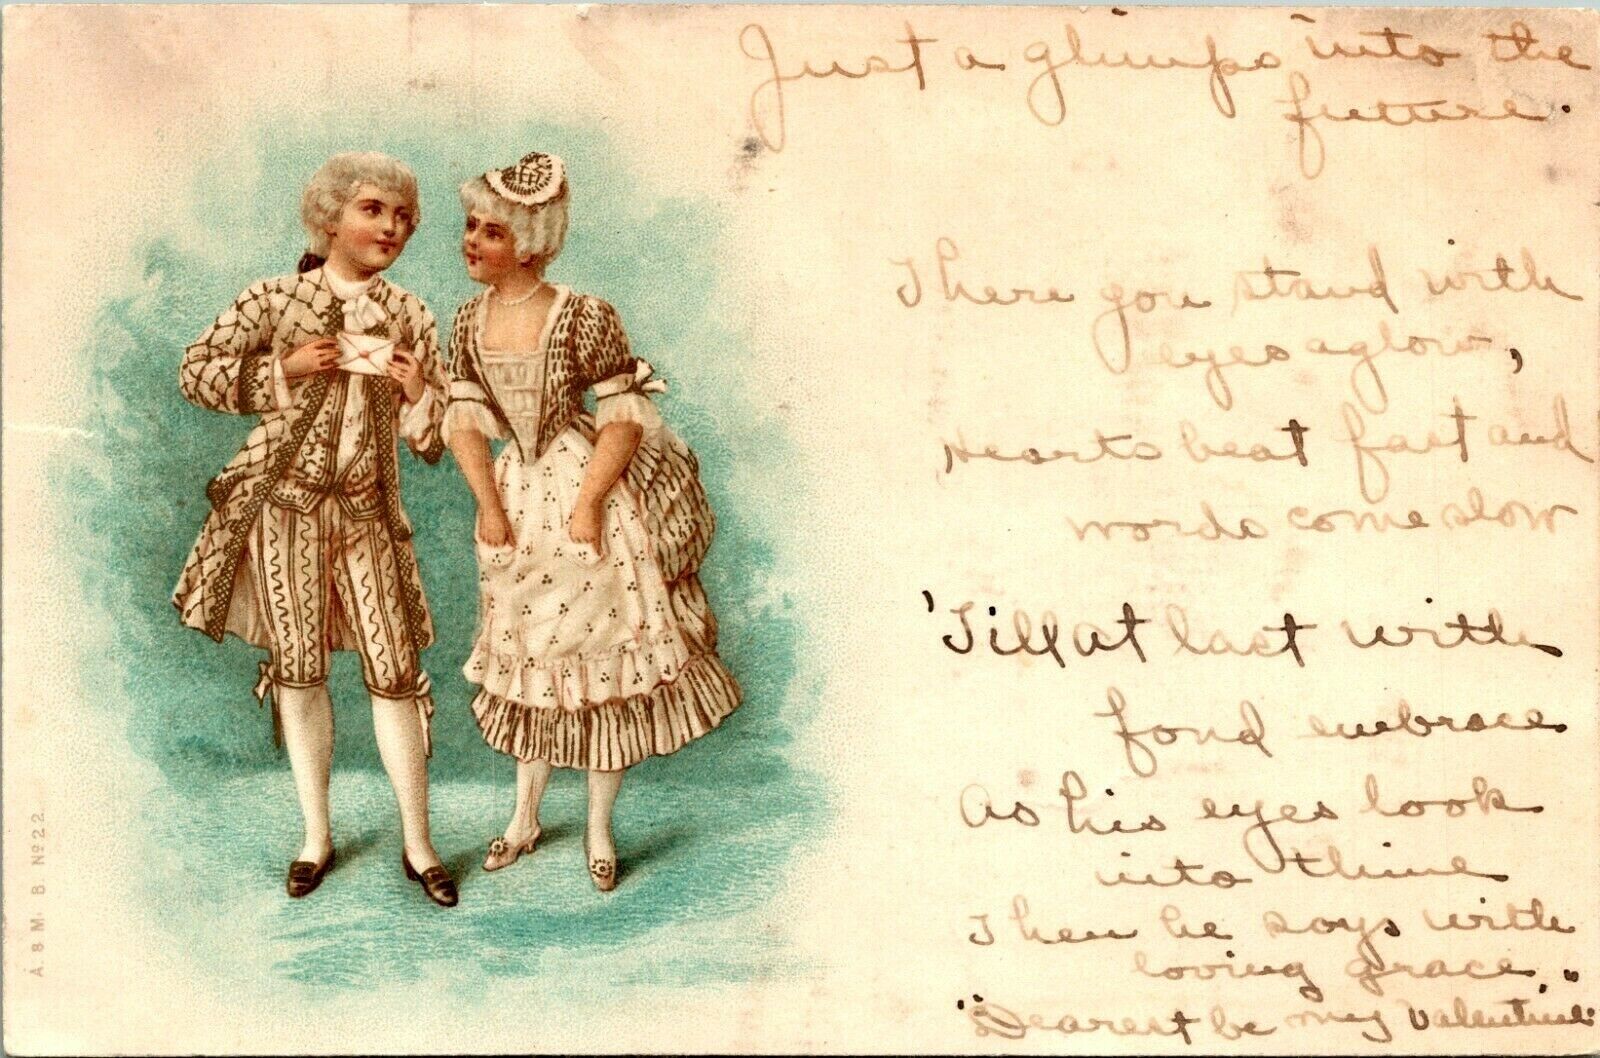 Just a glimps into the
future.
There you stand with
eyes aglow,
Hearts beat fast and
words come slow
'Till at last with
fond embrace
As his eyes look
into thine
Then he says with
loving grace,
"Dearest be my Valentine."
A. & M. B. No 22.